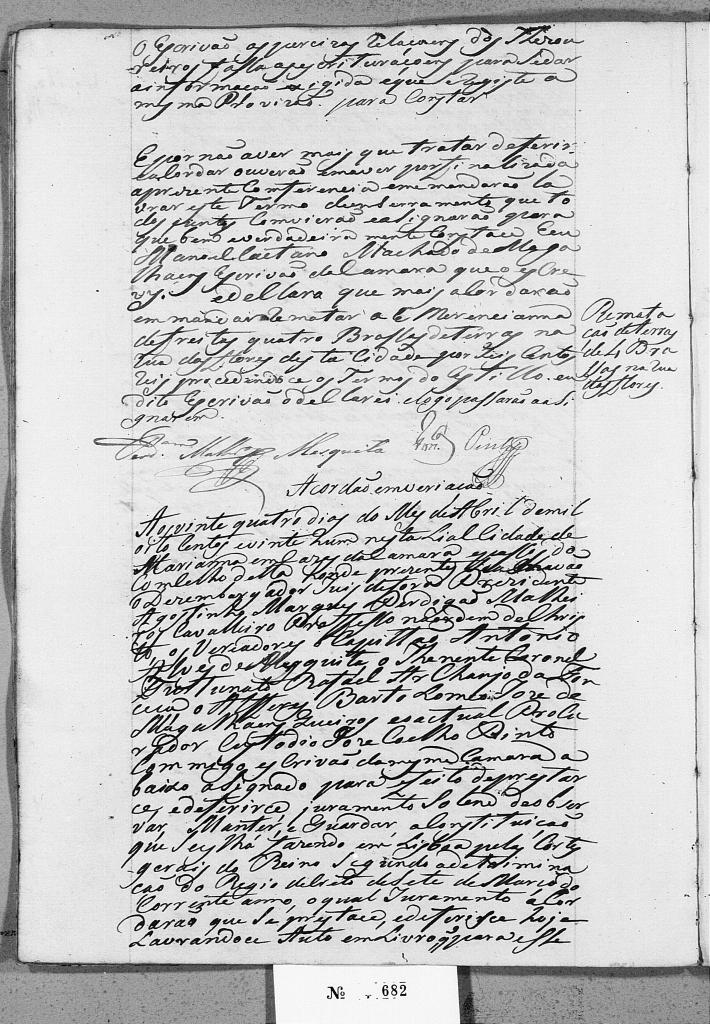 O Escrivão as parcizas Relaçoens dos Thezou
reiros e as escrituraçoens para se dar
a informação exigida e que se Registe a
mesma Provizão para Constar

E por não aver mais que tratar deferir
e acordar ouverão emaver por finalizada
a prezente Comferencia e me mandarão la
vrar este Termo de enserramento que to
dos juntos Convierão e asignarão para
que bem e verdadeira mente Constace E eu
Manoel Caetano Machado de Maga
lhaens Escrivão da Camara que o escre
vy. e declara que mais acordarão
em mandar Rematar a
de frestes quatro Brassas de terras na
Rua das Flores desta Cidade por seis Centos
reis procedendoce os Termos do Estillo. eu
dito Escrivão o declarei e logo passarão a asi
gnarem
Remata
ção de terras
de 4 Bra
ssas na rua
das flores.
Mesquita Fon.ca Pinto
Acordão em veriação
Aos vinte quatro dias do Mes de Abril de mil
oito Centos e vinte hum nesta Leal Cidade de
Marianna em Cazas da Camara e passos do
Comcelho della honde prezentes se achavão
o Dezembargador Juis de fora Prezidente
Agostinho Marques Perdigão Malhei
ros Cavalleiro Professo na ordem de Chris
to, os Veriadores o Capittão Antonio
Alves de Mesquita, o Thenente Coronel
Fortunato Rafael Archanjo da Fon
ceca o Alferes Bartolomeo Joze de
Magalhaens Queiros e o actual Procu
rador Custodio Joze Coelho Pinto
Commigo escrivão da mesma Camara a
baixo asignado para efeito de prestar
ce, e deferirce, juramento Solene de obser
var, Manter, e Guardar, a Constituição
que se está fazendo em Lisboa pelas Cortes
gerais do Reino Segundo a determina
ção do Regio decreto de Sete de Março do
Corrente anno, o qual Juramento acor
darão que se prestace, e deferisce hoje
Lavrandoce Auto em Livro q para esse
Nº 682